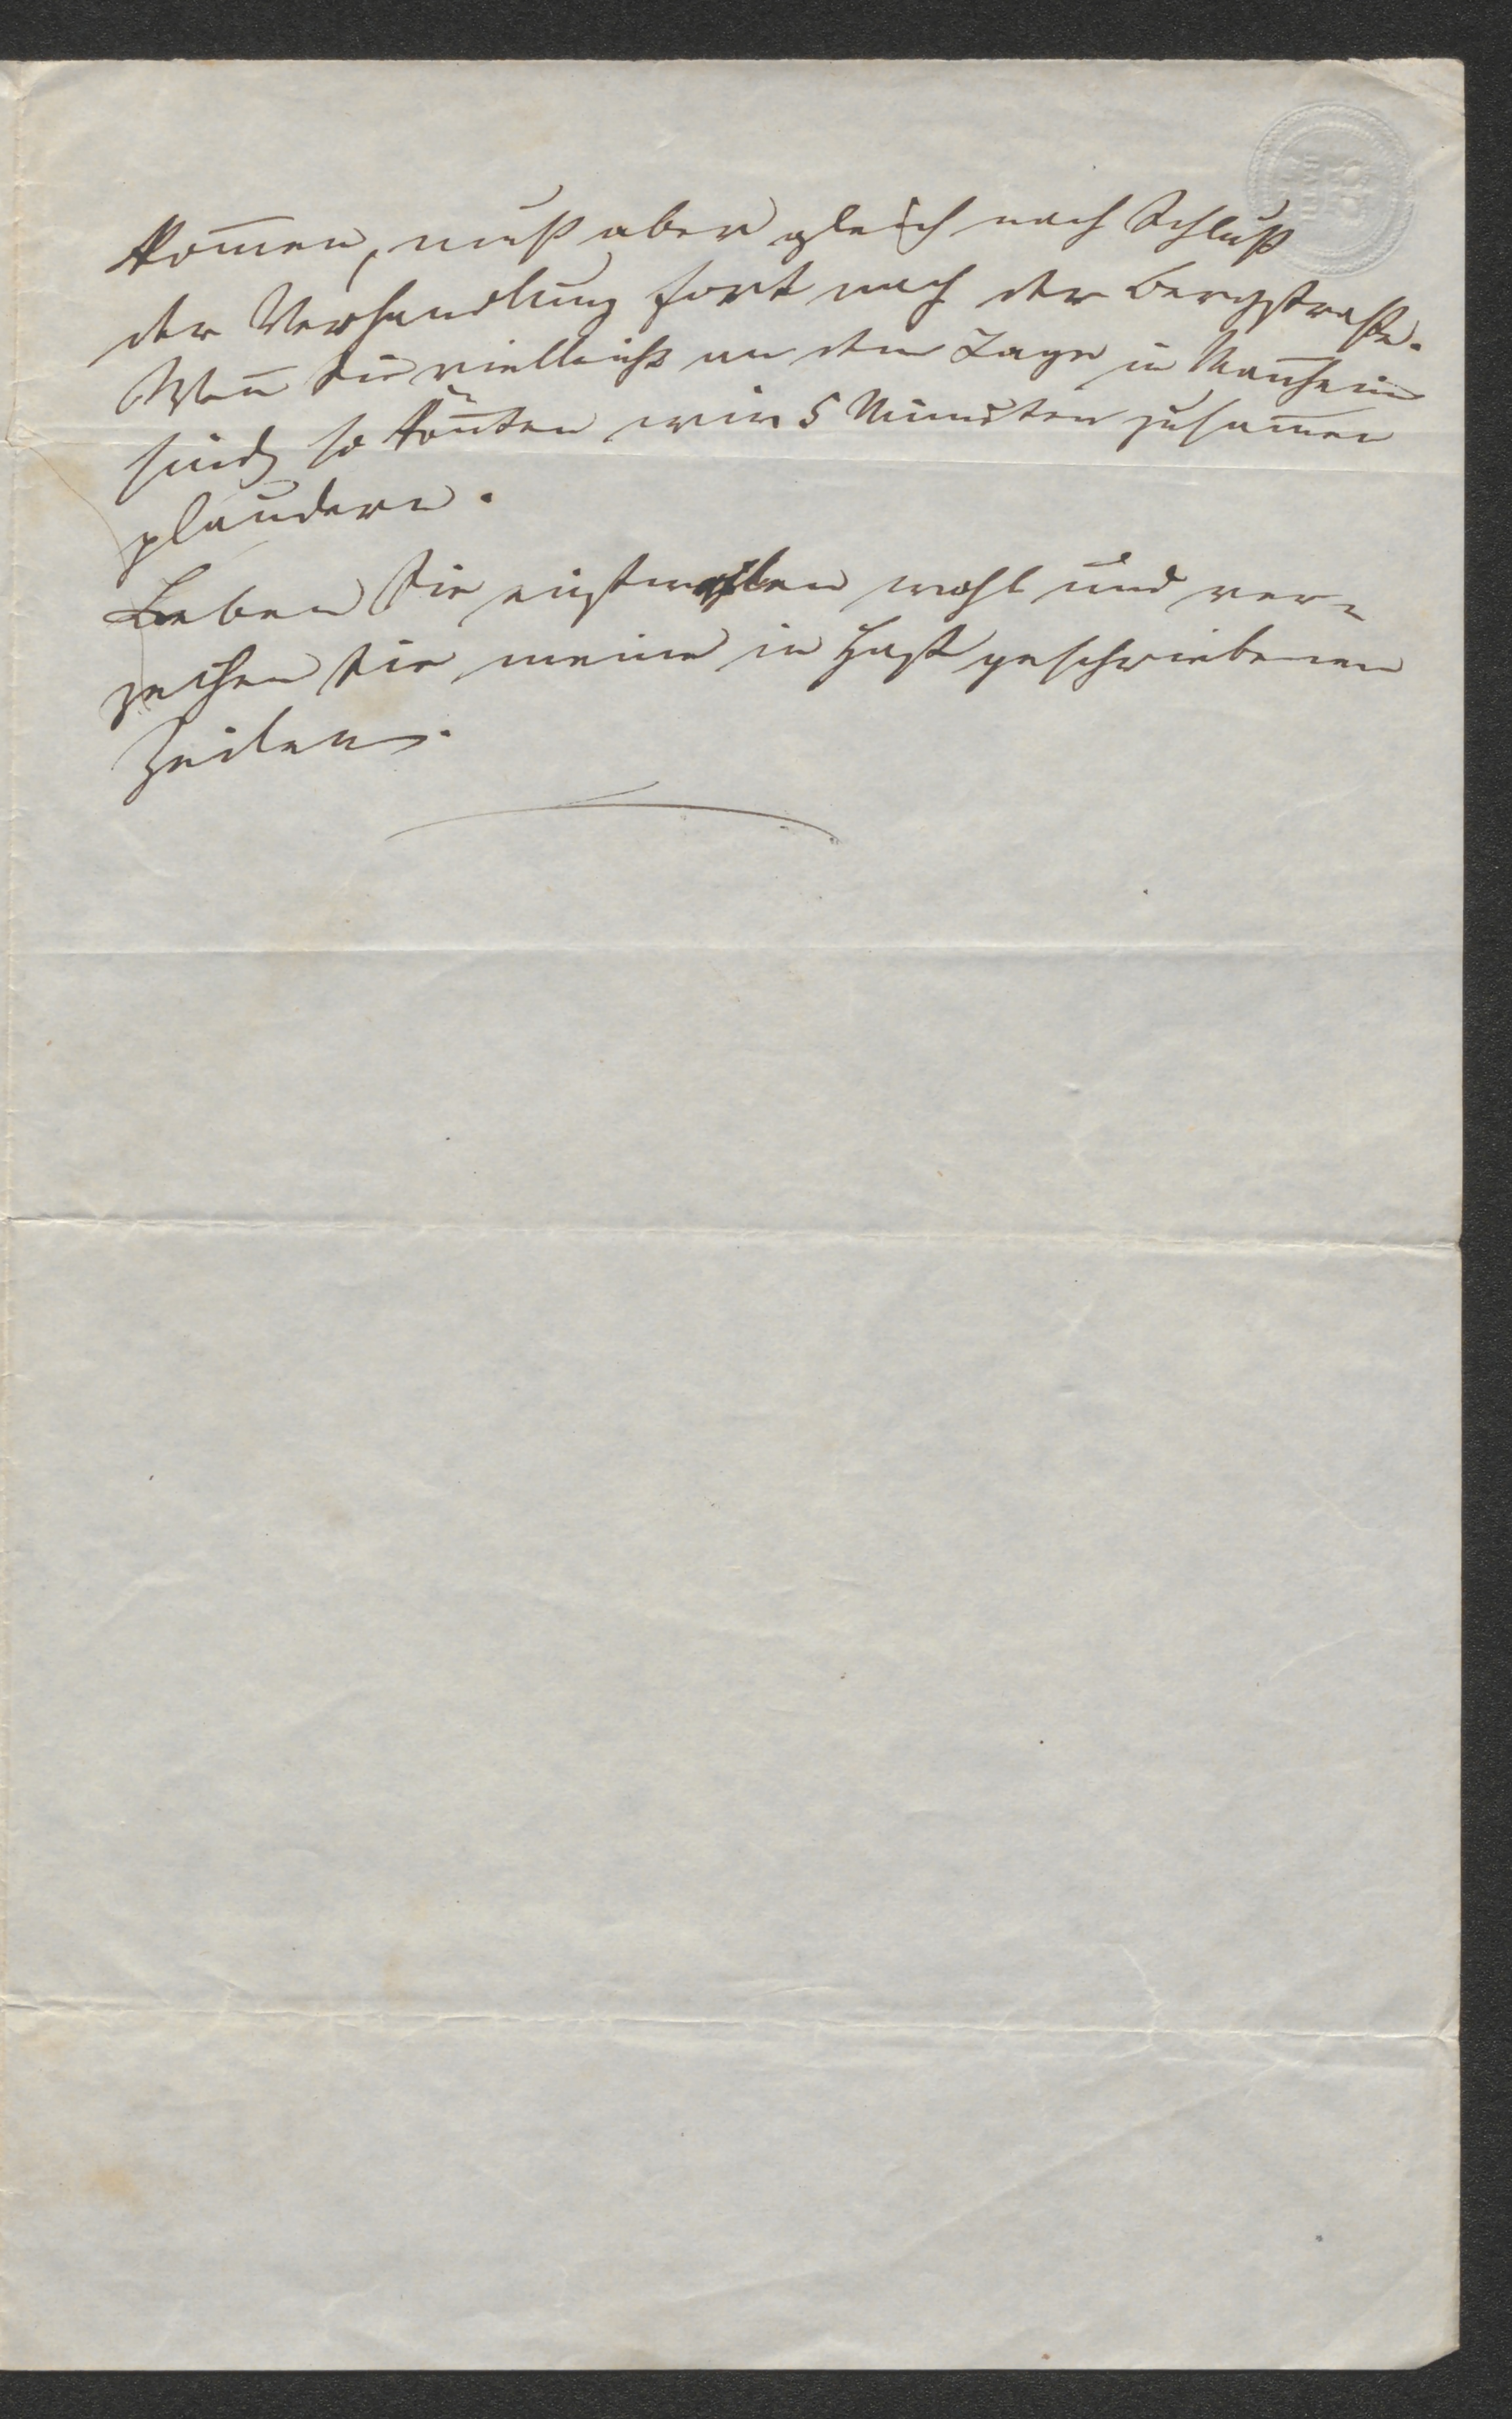 kom̅en, muß aber gleich nach Schluß
der Verhandlung fort nach der Bergstraße.
Wen̅ Sie vielleicht an dem Tage in Man̅heim
sind, so kön̅ten wir 5 Minuten zusam̅en
plaudern.
Leben Sie einstweilen wohl und ver-
zeihen Sie meine in Hast geschriebenen
Zeilen.